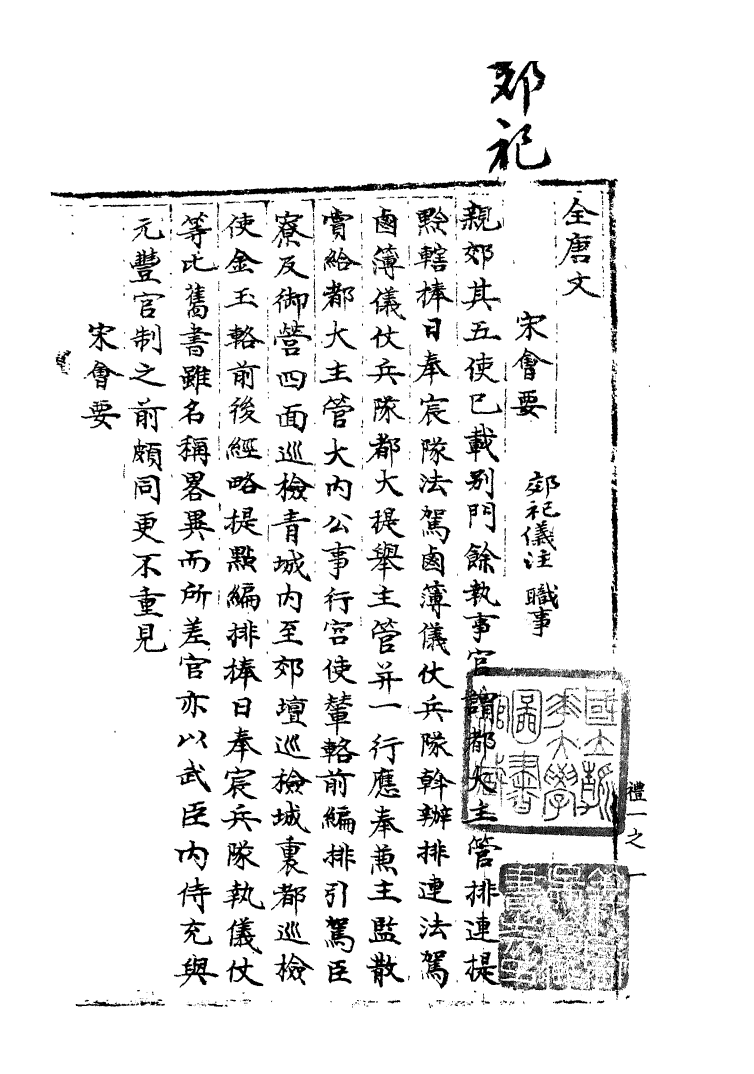 郊祀
全唐文
宋會要
郊祀儀注 職事
親郊其五使已載別門餘執事官謂都大主管排連提
點轄捧日奉宸隊法駕鹵簿儀仗兵隊幹辦排連法駕
鹵簿儀仗兵隊都大提舉主管并一行應奉兼主監散
賞給都大主管大內公事行宮使輦輅前編排引駕臣
寮及御營四面巡檢青城內至郊壇巡檢城裏都巡檢
使金玉輅前後經略提點編排捧日奉宸兵隊執儀仗
等比舊書雖名稱畧異而所差官亦以武臣內侍充與
元豐官制之前頗同更不重見
宋會要
禮一之一